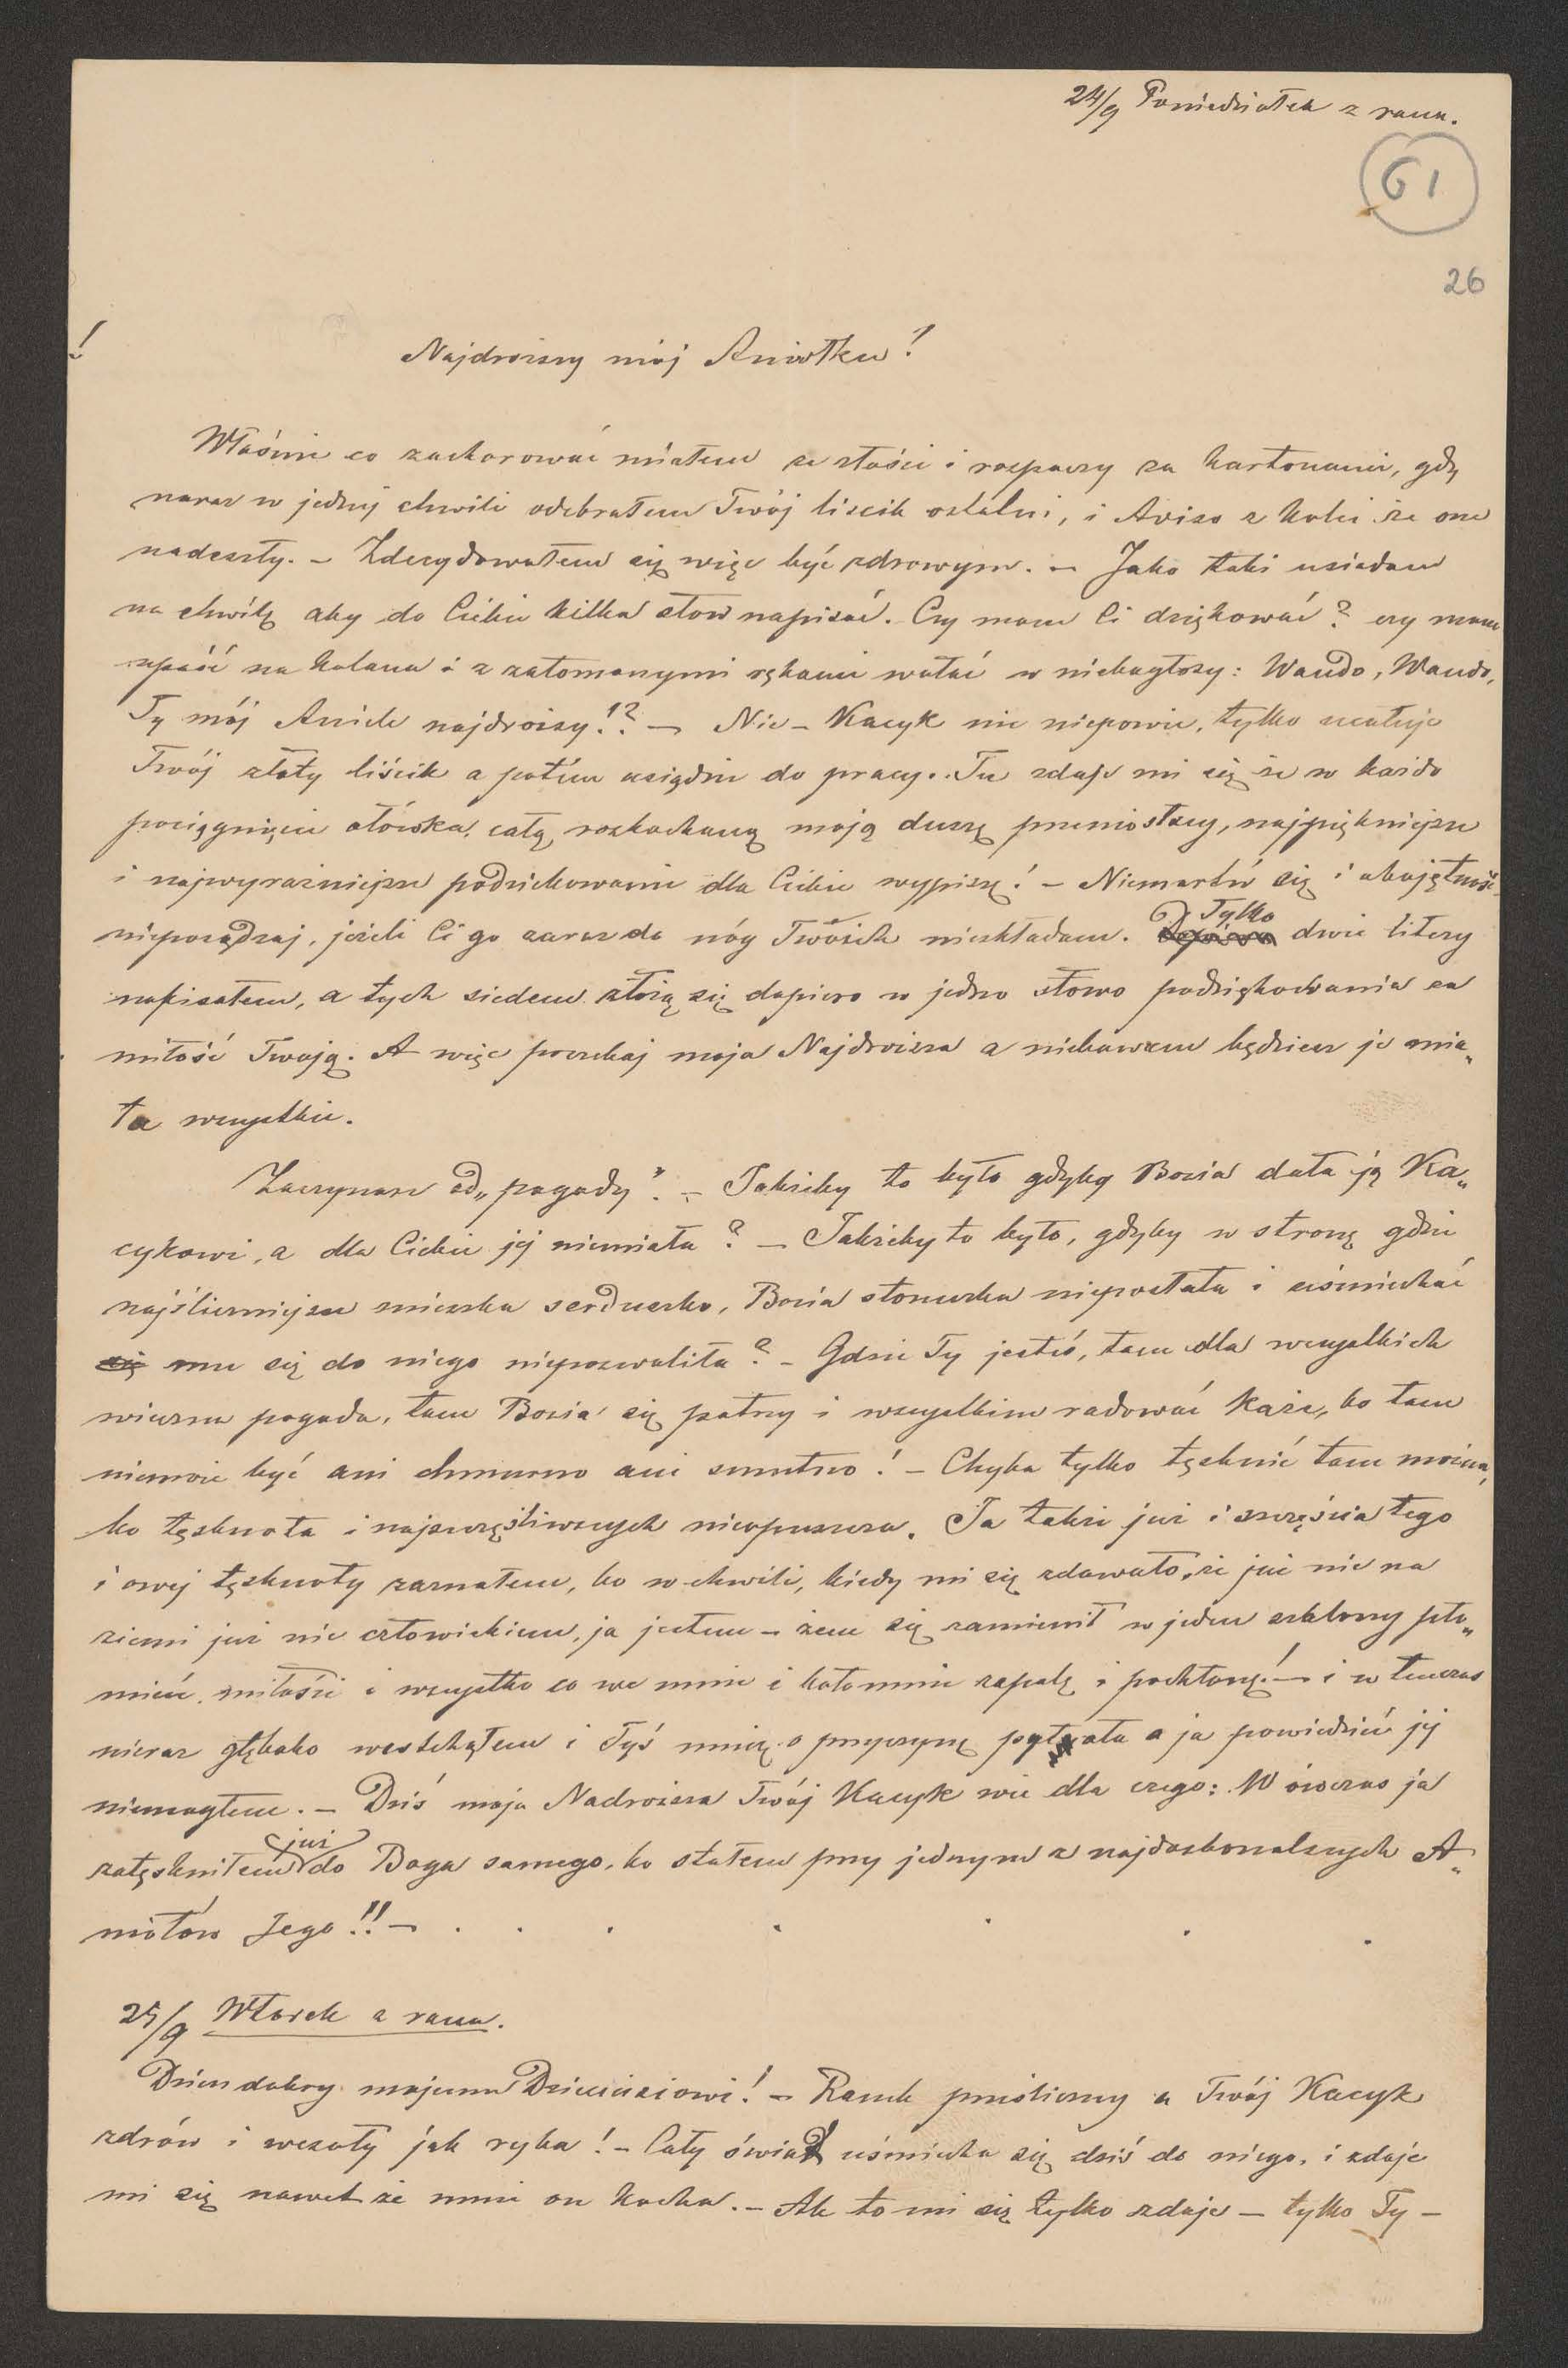 24/9 Poniedziałek z rana.
61
26
!
Najdroższy mój Aniołku!
Właśnie co zachorować miałem ze złości i rozpaczy za kartonami, gdy
naraz w jednej chwili odebrałem Twój liścik ostatni, i Aviso z kolei że one
nadeszły. – Zdecydowałem się więc być zdrowym. – Jako taki usiadam
na chwilę aby do Ciebie kilka słow napisać. Czy mam Ci dziękować? czy mam
upaść na kolana i z załomanymi rękami wołać w niebogłosy: Wando, Wando,
Ty mój Aniele najdroższy!? – Nie – Kacyk nic niepowie, tylko ucałuje
Twój złoty liścik a potém usiądzie do pracy. Tu zdaje mi się że w każde
pociągnięcie ołówka, całą rozkochaną moją duszę przeniosłszy, najpiękniejsze
i najwyraźniejsze podziekowanie dla Ciebie wypiszę! – Niemartw się i o obojętność
nieposądzaj, jeżeli Ci go zaraz do nóg Twoich nieskładam. Tylko dwie litery
napisałem, a tych siedem złożą się dopiero w jedno słowo podziękowania za
miłość Twoją. A więc poczekaj moja Najdroższa a niebawem będziesz je mia„
ła wszystkie.
Zaczynasz od „pogody”. – Jakżeby to było gdyby Bozia dała ją Ka„
cykowi, a dla Ciebie jej niemiała? – Jakżeby to było, gdyby w stronę gdzie
najśliczniejsze mieszka serduszko, Bozia słoneczka nieposłała i uśmiechać
się mu się do niego niepozwoliła? – Gdzie Ty jesteś, tam dla wszystkich
wieczna pogoda, tam Bozia się patrzy i wszystkim radować każe, bo tam
niemoże być ani chmurno ani smutno! – Chyba tylko tęsknić tam można,
bo tęsknota i najszczęśliwszych nieopuszcza. Ja także już i szczęścia tego
i owej tęsknoty zaznałem, bo w chwili, kiedy mi się zdawało, że już nie na
ziemi już nie człowiekiem, ja jestem – żem się zamienił w jeden szalony pło„
mień miłości i wszystko co we mnie i koło mnie zapalę i pochłonę! – i w tenczas
nieraz głęboko westchąłem i Tyś mnię o przyczynę pytała a ja powiedzieć jej
niemogłem. – Dziś moja Nadroższa Twój Kacyk wie dla czego: W ówczas ja
zatęskniłem już do Boga samego, bo stałem przy jednym z najdoskonalszych A„
niołów Jego!! – . . . . . . .
25/9 Wtorek z rana.
Dzień dobry mojemu Dzieciuziowi! – Ranek prześliczny a Twój Kacyk
zdrów i wesoły jak ryba! – Cały świat uśmiecha się dziś do niego, i zdaje
mi się nawet że mnie on kocha. – Ale to mi się tylko zdaje – tylko Ty –